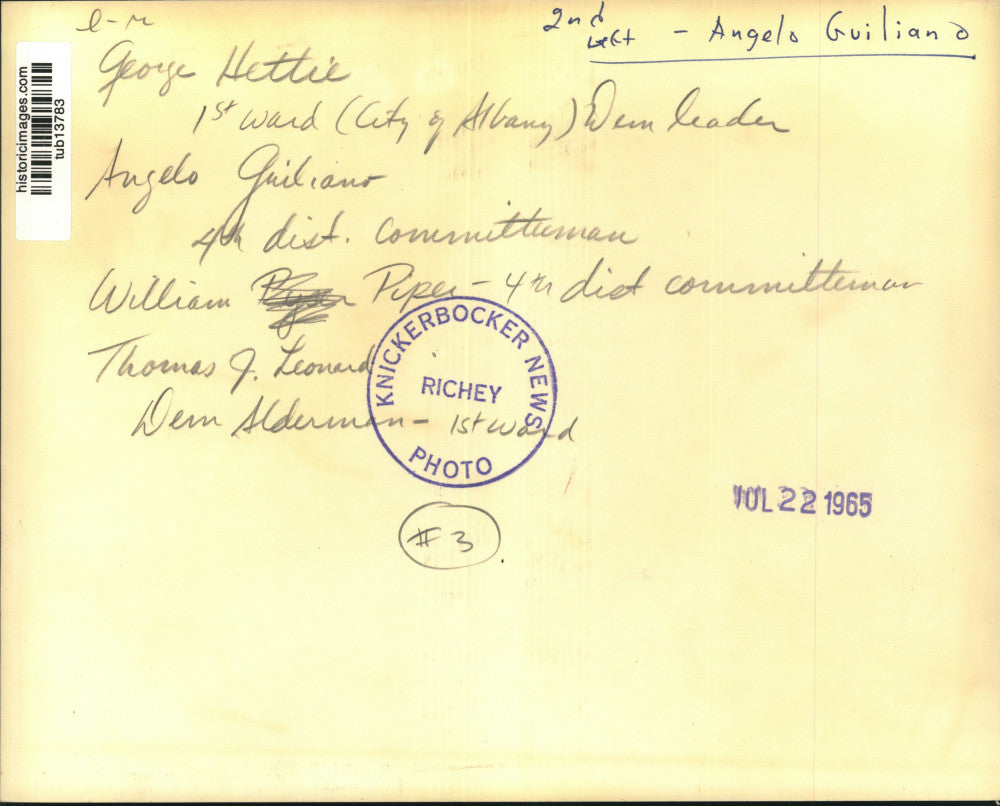 l-r
2nd left - Angelo Guiliano
George Hettie
1st ward (City of Albany) Dem leader
Angelo Guiliano
4th dist. committeeman
William Piper - 4th dist committeeman
Thomas J. Leonard
Dem Alderman - 1st ward
KNICKERBOCKER NEWS
RICHEY
PHOTO
JUL 22 1965
#3.
historicimages.com
tub13783